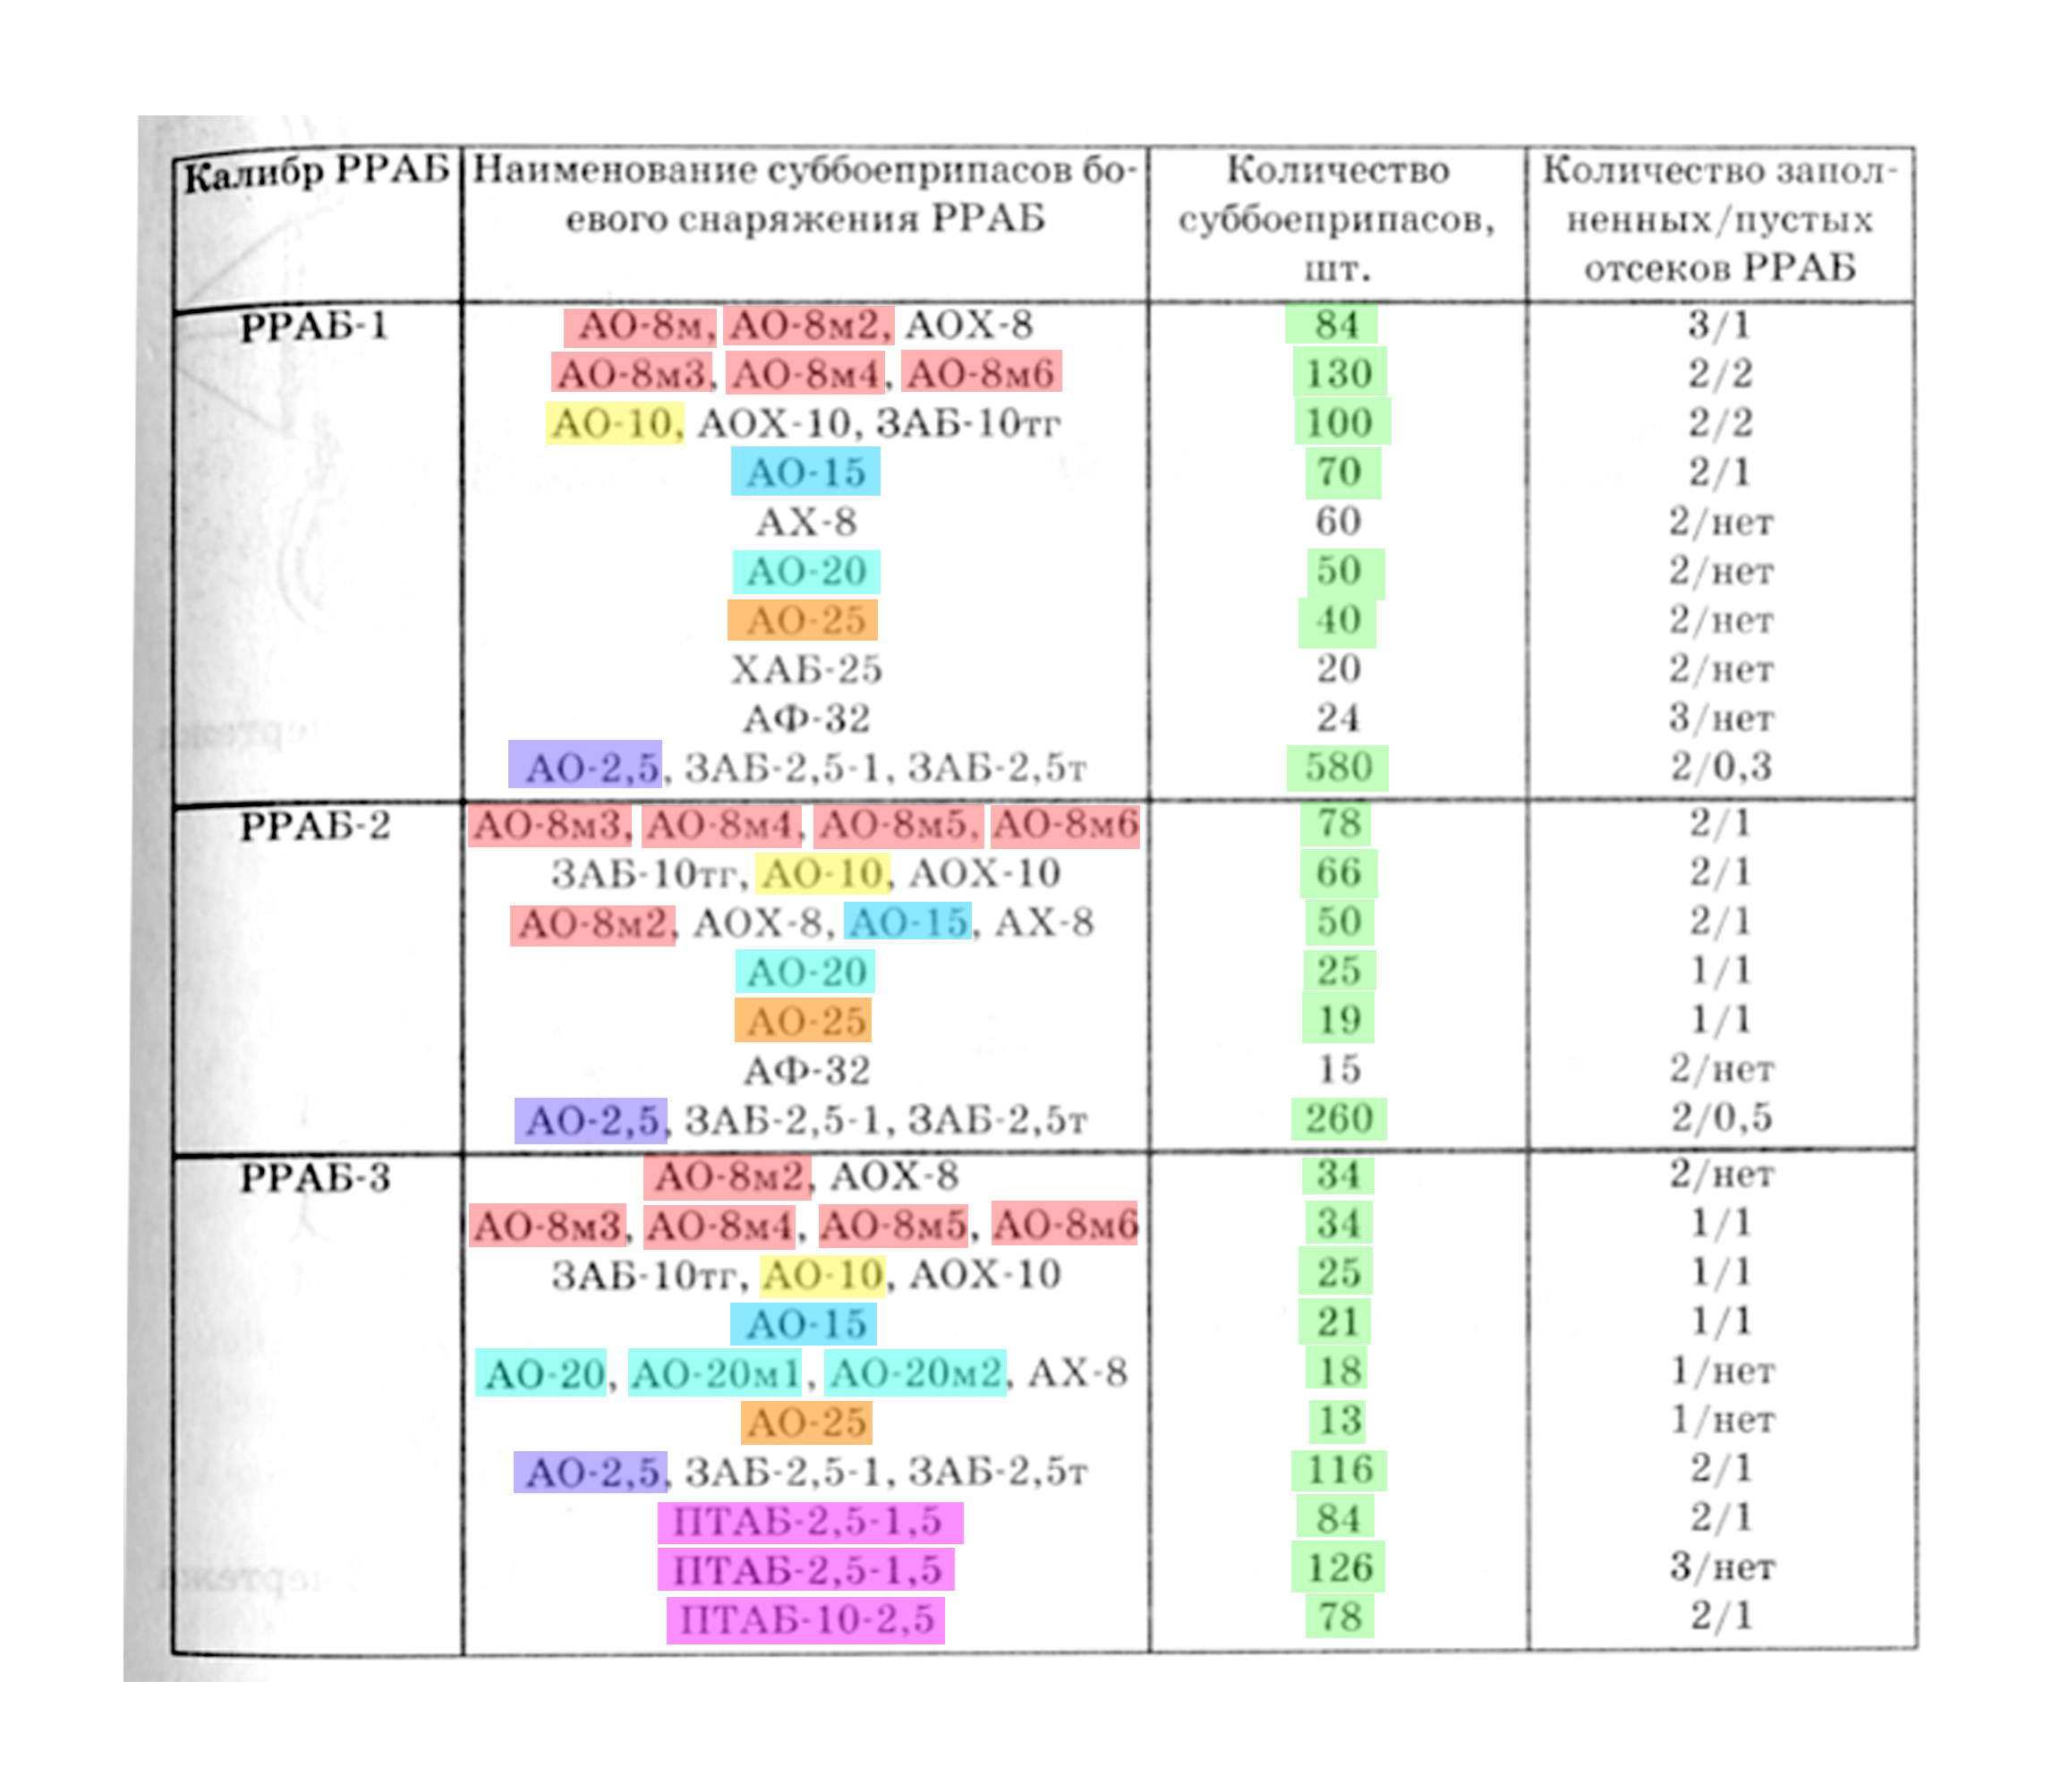 Калибр РРАБ
Наименование суббоеприпасов бо-
евого снаряжения РРАБ
Количество
суббоеприпасов,
шт.
Количество запол-
ненных/пустых
отсеков РРАБ
РРАБ-1 АО-8м, АО-8м2, АОХ-8 84 3/1
АО-8м3, АО-8м4, АО-8м6 130 2/2
АО-10, АОХ-10, ЗАБ-10тг 100 2/2
АО-15 70 2/1
АХ-8 60 2/нет
АО-20 50 2/нет
АО-25 40 2/нет
ХАБ-25 20 2/нет
АФ-32 24 3/нет
АО-2,5, ЗАБ-2,5-1, ЗАБ-2,5т 580 2/0,3
РРАБ-2 АО-8м3, АО-8м4, АО-8м5, АО-8м6 78 2/1
ЗАБ-10тг, АО-10, АОХ-10 66 2/1
АО-8м2, АОХ-8, АО-15, АХ-8 50 2/1
АО-20 25 1/1
АО-25 19 1/1
АФ-32 15 2/нет
АО-2,5, ЗАБ-2,5-1, ЗАБ-2,5т 260 2/0,5
РРАБ-3 АО-8м2, АОХ-8 34 2/нет
АО-8м3, АО-8м4, АО-8м5, АО-8м6 34 1/1
ЗАБ-10тг, АО-10, АОХ-10 25 1/1
АО-15 21 1/1
АО-20, АО-20м1, АО-20м2, АХ-8 18 1/нет
АО-25 13 1/нет
АО-2,5, ЗАБ-2,5-1, ЗАБ-2,5т 116 2/1
ПТАБ-2,5-1,5 84 2/1
ПТАБ-2,5-1,5 126 3/нет
ПТАБ-10-2,5 78 2/1